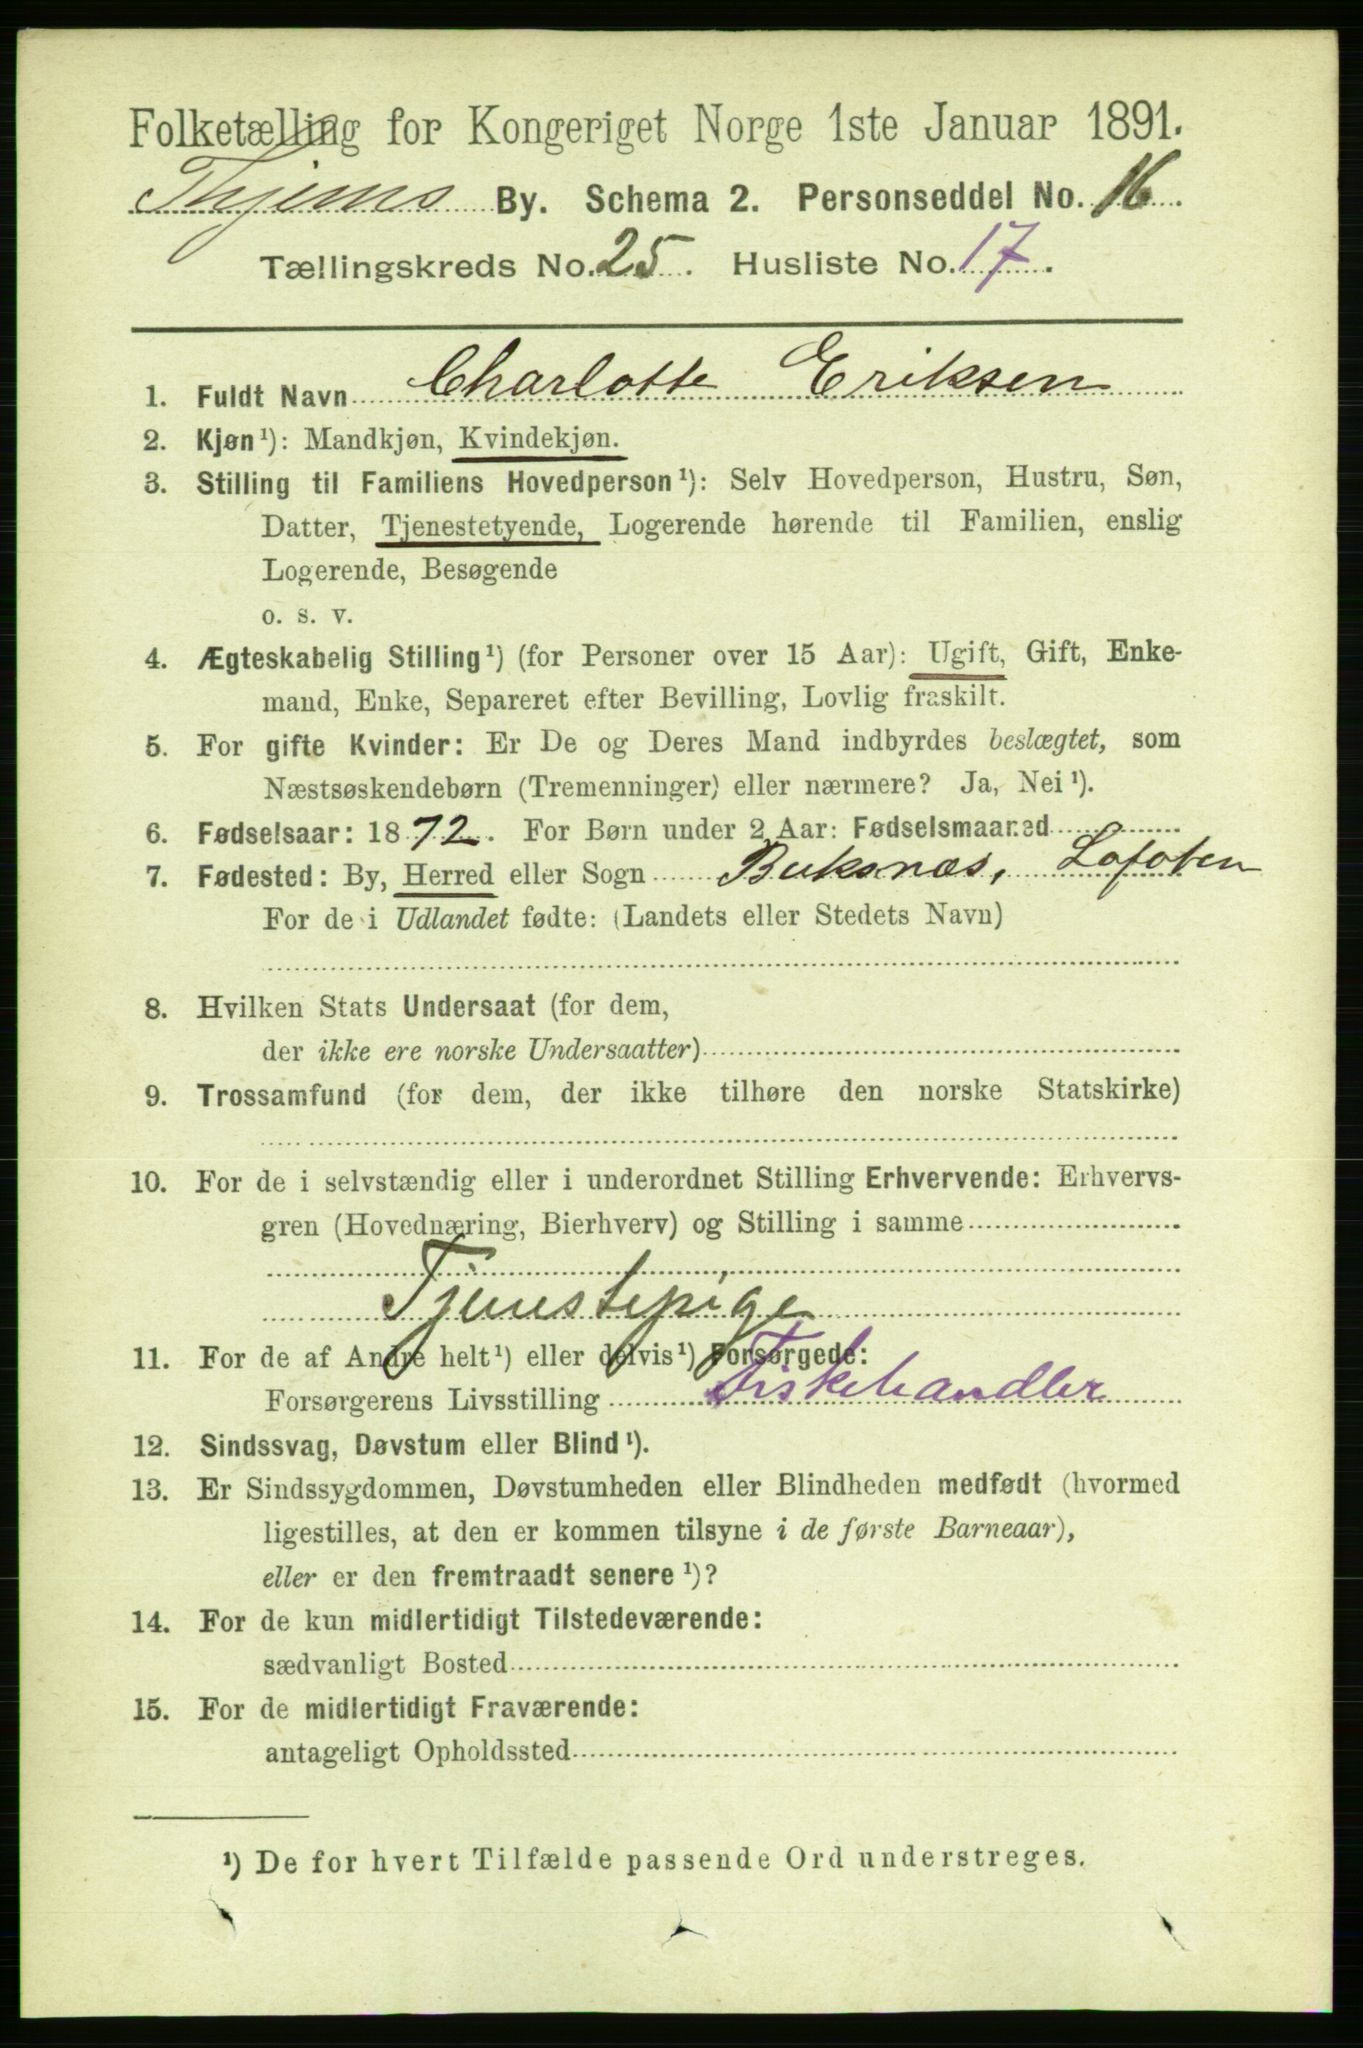 Folketælling for Kongeriget Norge 1ste Januar 1891.
By. Schema 2. Personseddel No. 16.
Tællingskreds No. 25. Husliste No. 17.
1. Fuldt Navn Charlotte Eriksen
2. Kjøn¹): Mandkjøn, Kvindekjøn.
3. Stilling til Familiens Hovedperson¹): Selv Hovedperson, Hustru, Søn,
Datter, Tjenestetyende, Logerende hørende til Familien, enslig
Logerende, Besøgende
o. s. v.
4. Ægteskabelig Stilling¹) (for Personer over 15 Aar): Ugift, Gift, Enke-
mand, Enke, Separeret efter Bevilling, Lovlig fraskilt.
5. For gifte Kvinder: Er De og Deres Mand indbyrdes beslægtet, som
Næstsøskendebørn (Tremenninger) eller nærmere? Ja, Nei¹).
6. Fødselsaar: 1872. For Børn under 2 Aar: Fødselsmaaned
7. Fødested: By, Herred eller Sogn Buksnæs, Lofoten
For de i Udlandet fødte: (Landets eller Stedets Navn)
8. Hvilken Stats Undersaat (for dem,
der ikke ere norske Undersaatter)
9. Trossamfund (for dem, der ikke tilhøre den norske Statskirke)
10. For de i selvstændig eller i underordnet Stilling Erhvervende: Erhvervs-
gren (Hovednæring, Bierhverv) og Stilling i samme
Tjenestepige
11. For de af Andre helt¹) eller delvis¹) Forsørgede:
Forsørgerens Livsstilling Fiskehandler
12. Sindssvag, Døvstum eller Blind¹).
13. Er Sindssygdommen, Døvstumheden eller Blindheden medfødt (hvormed
ligestilles, at den er kommen tilsyne i de første Barneaar),
eller er den fremtraadt senere¹)?
14. For de kun midlertidigt Tilstedeværende:
sædvanligt Bosted
15. For de midlertidigt Fraværende:
antageligt Opholdssted
¹) De for hvert Tilfælde passende Ord understreges.